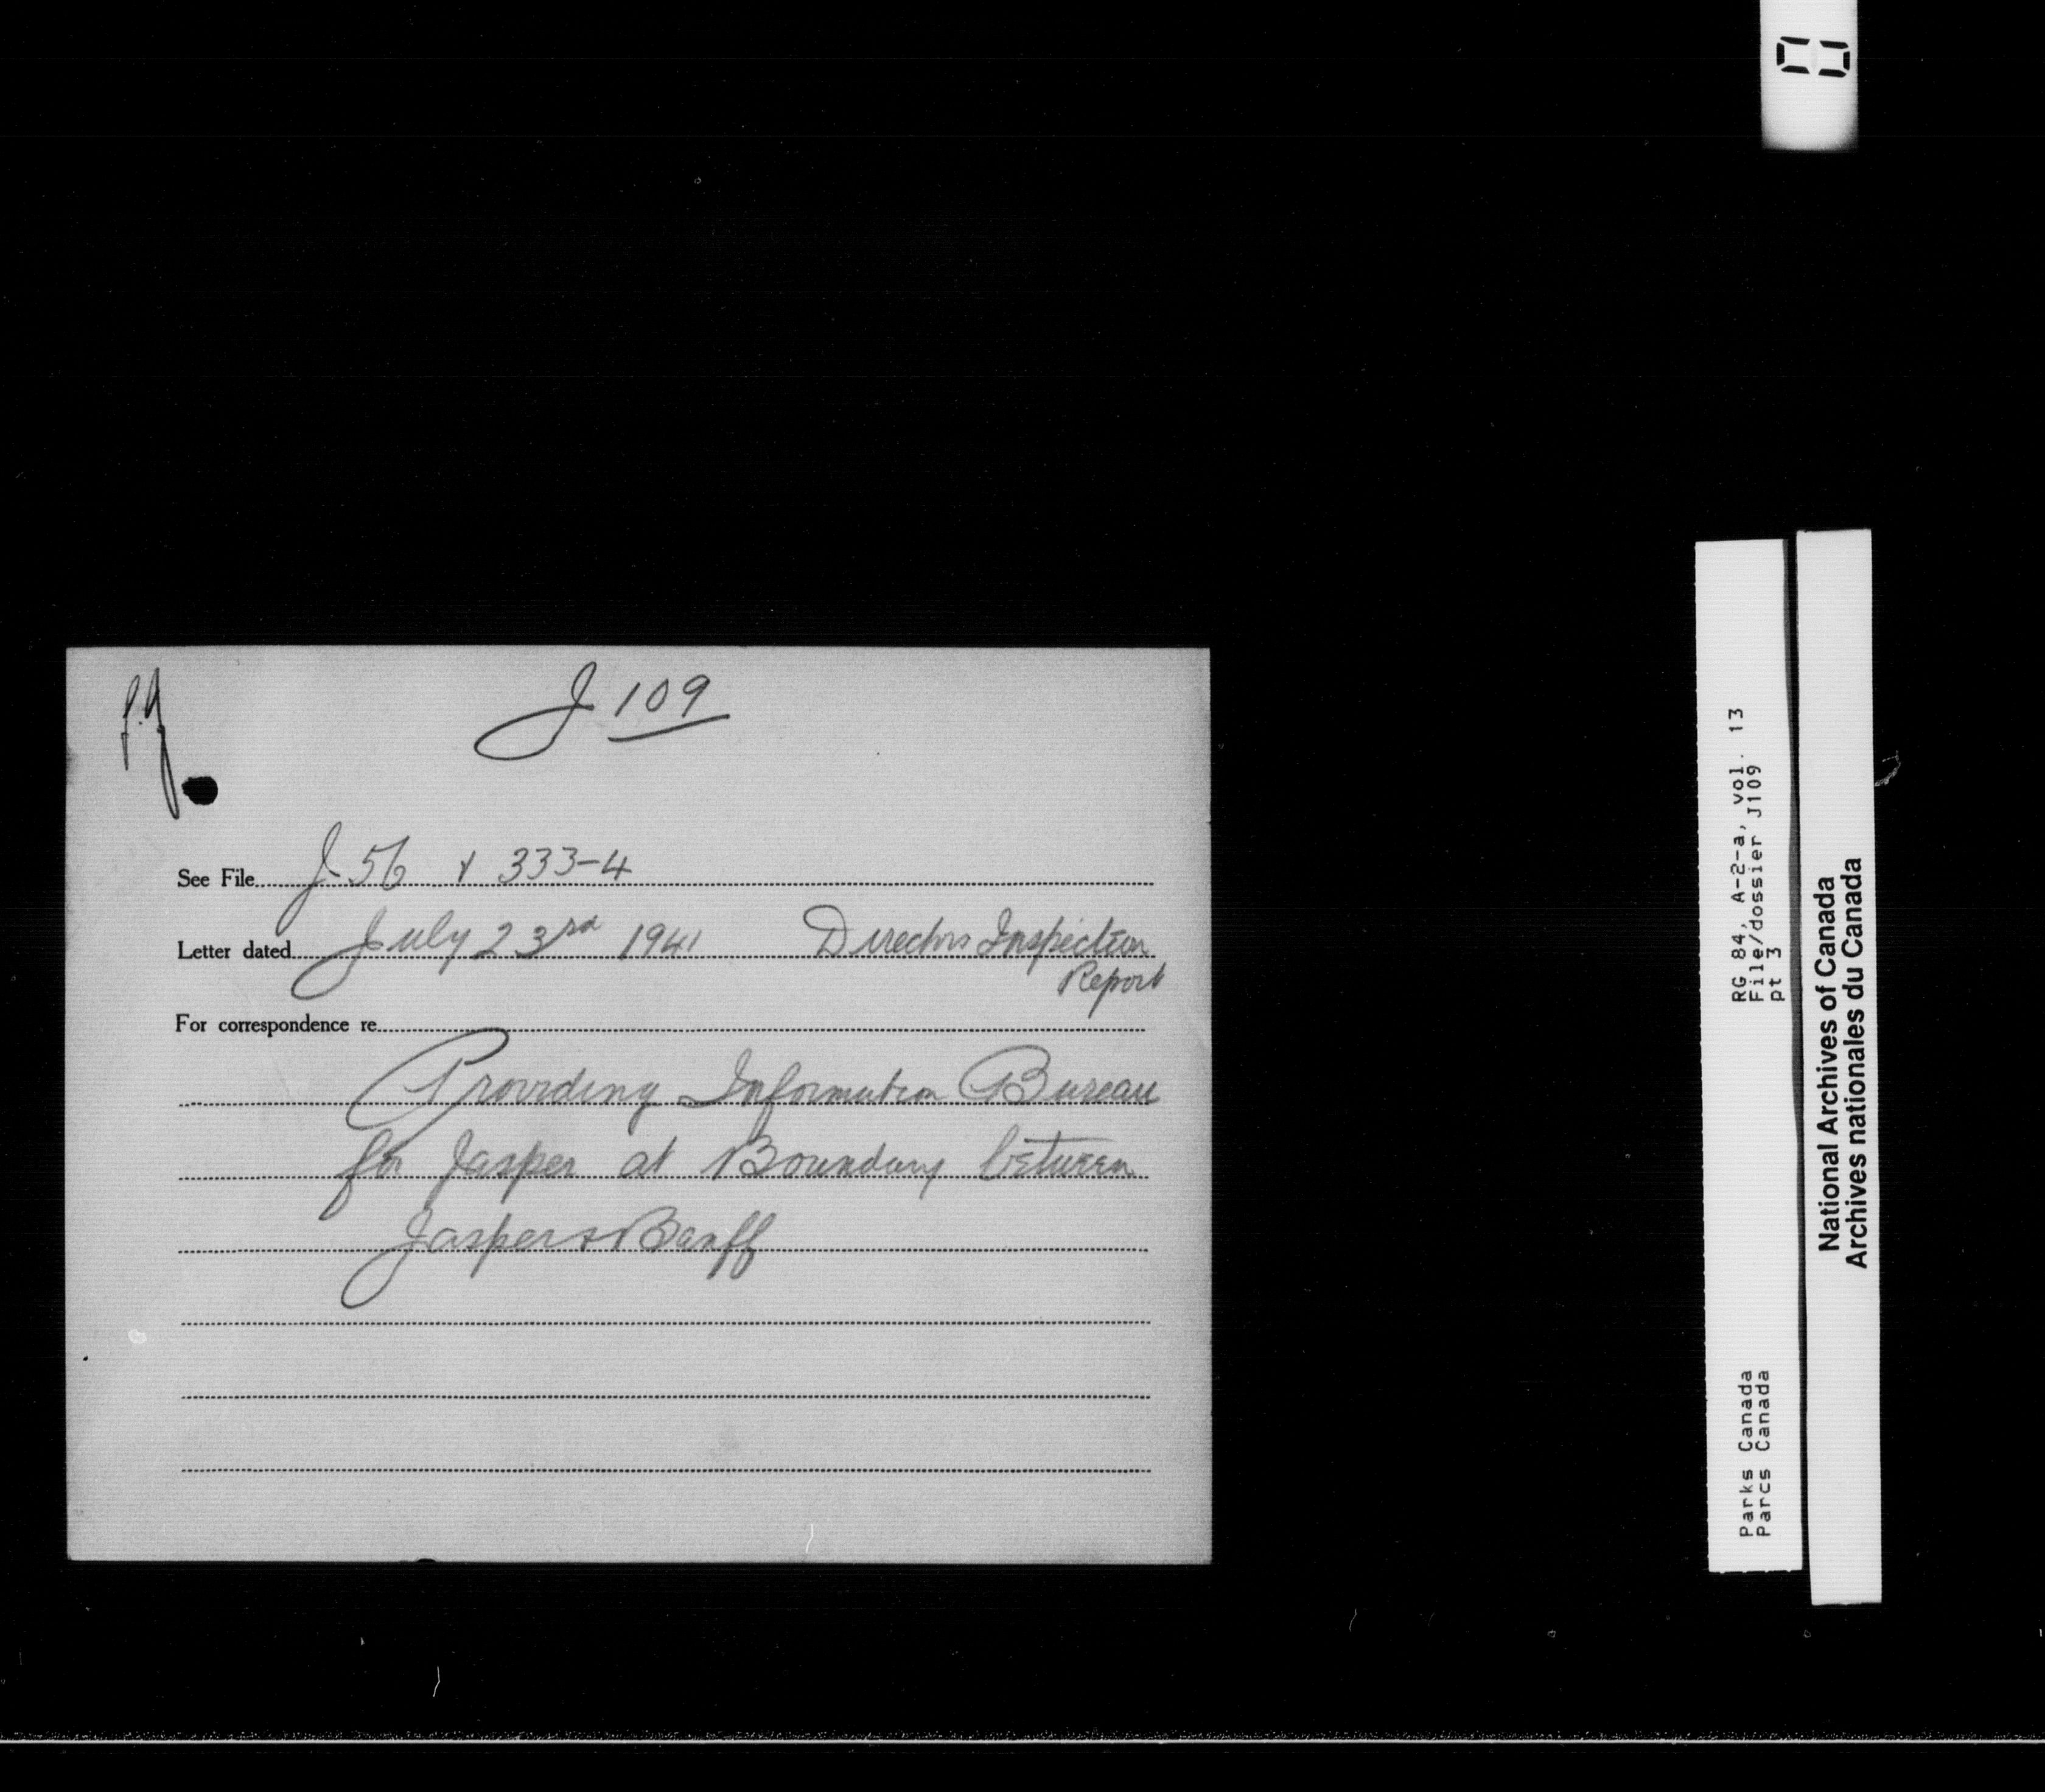 J 109
See File J-56 & 333-4
Letter dated July 23rd 1941 Directors Inspection
Report
For correspondence re
Providing Information Bureau
for Jasper at Boundary between
Jasper & Banff
RG 84, A-2-a, vol. 13
File/dossier J109
pt 3
Parks Canada
Parcs Canada
National Archives of Canada
Archives nationales du Canada